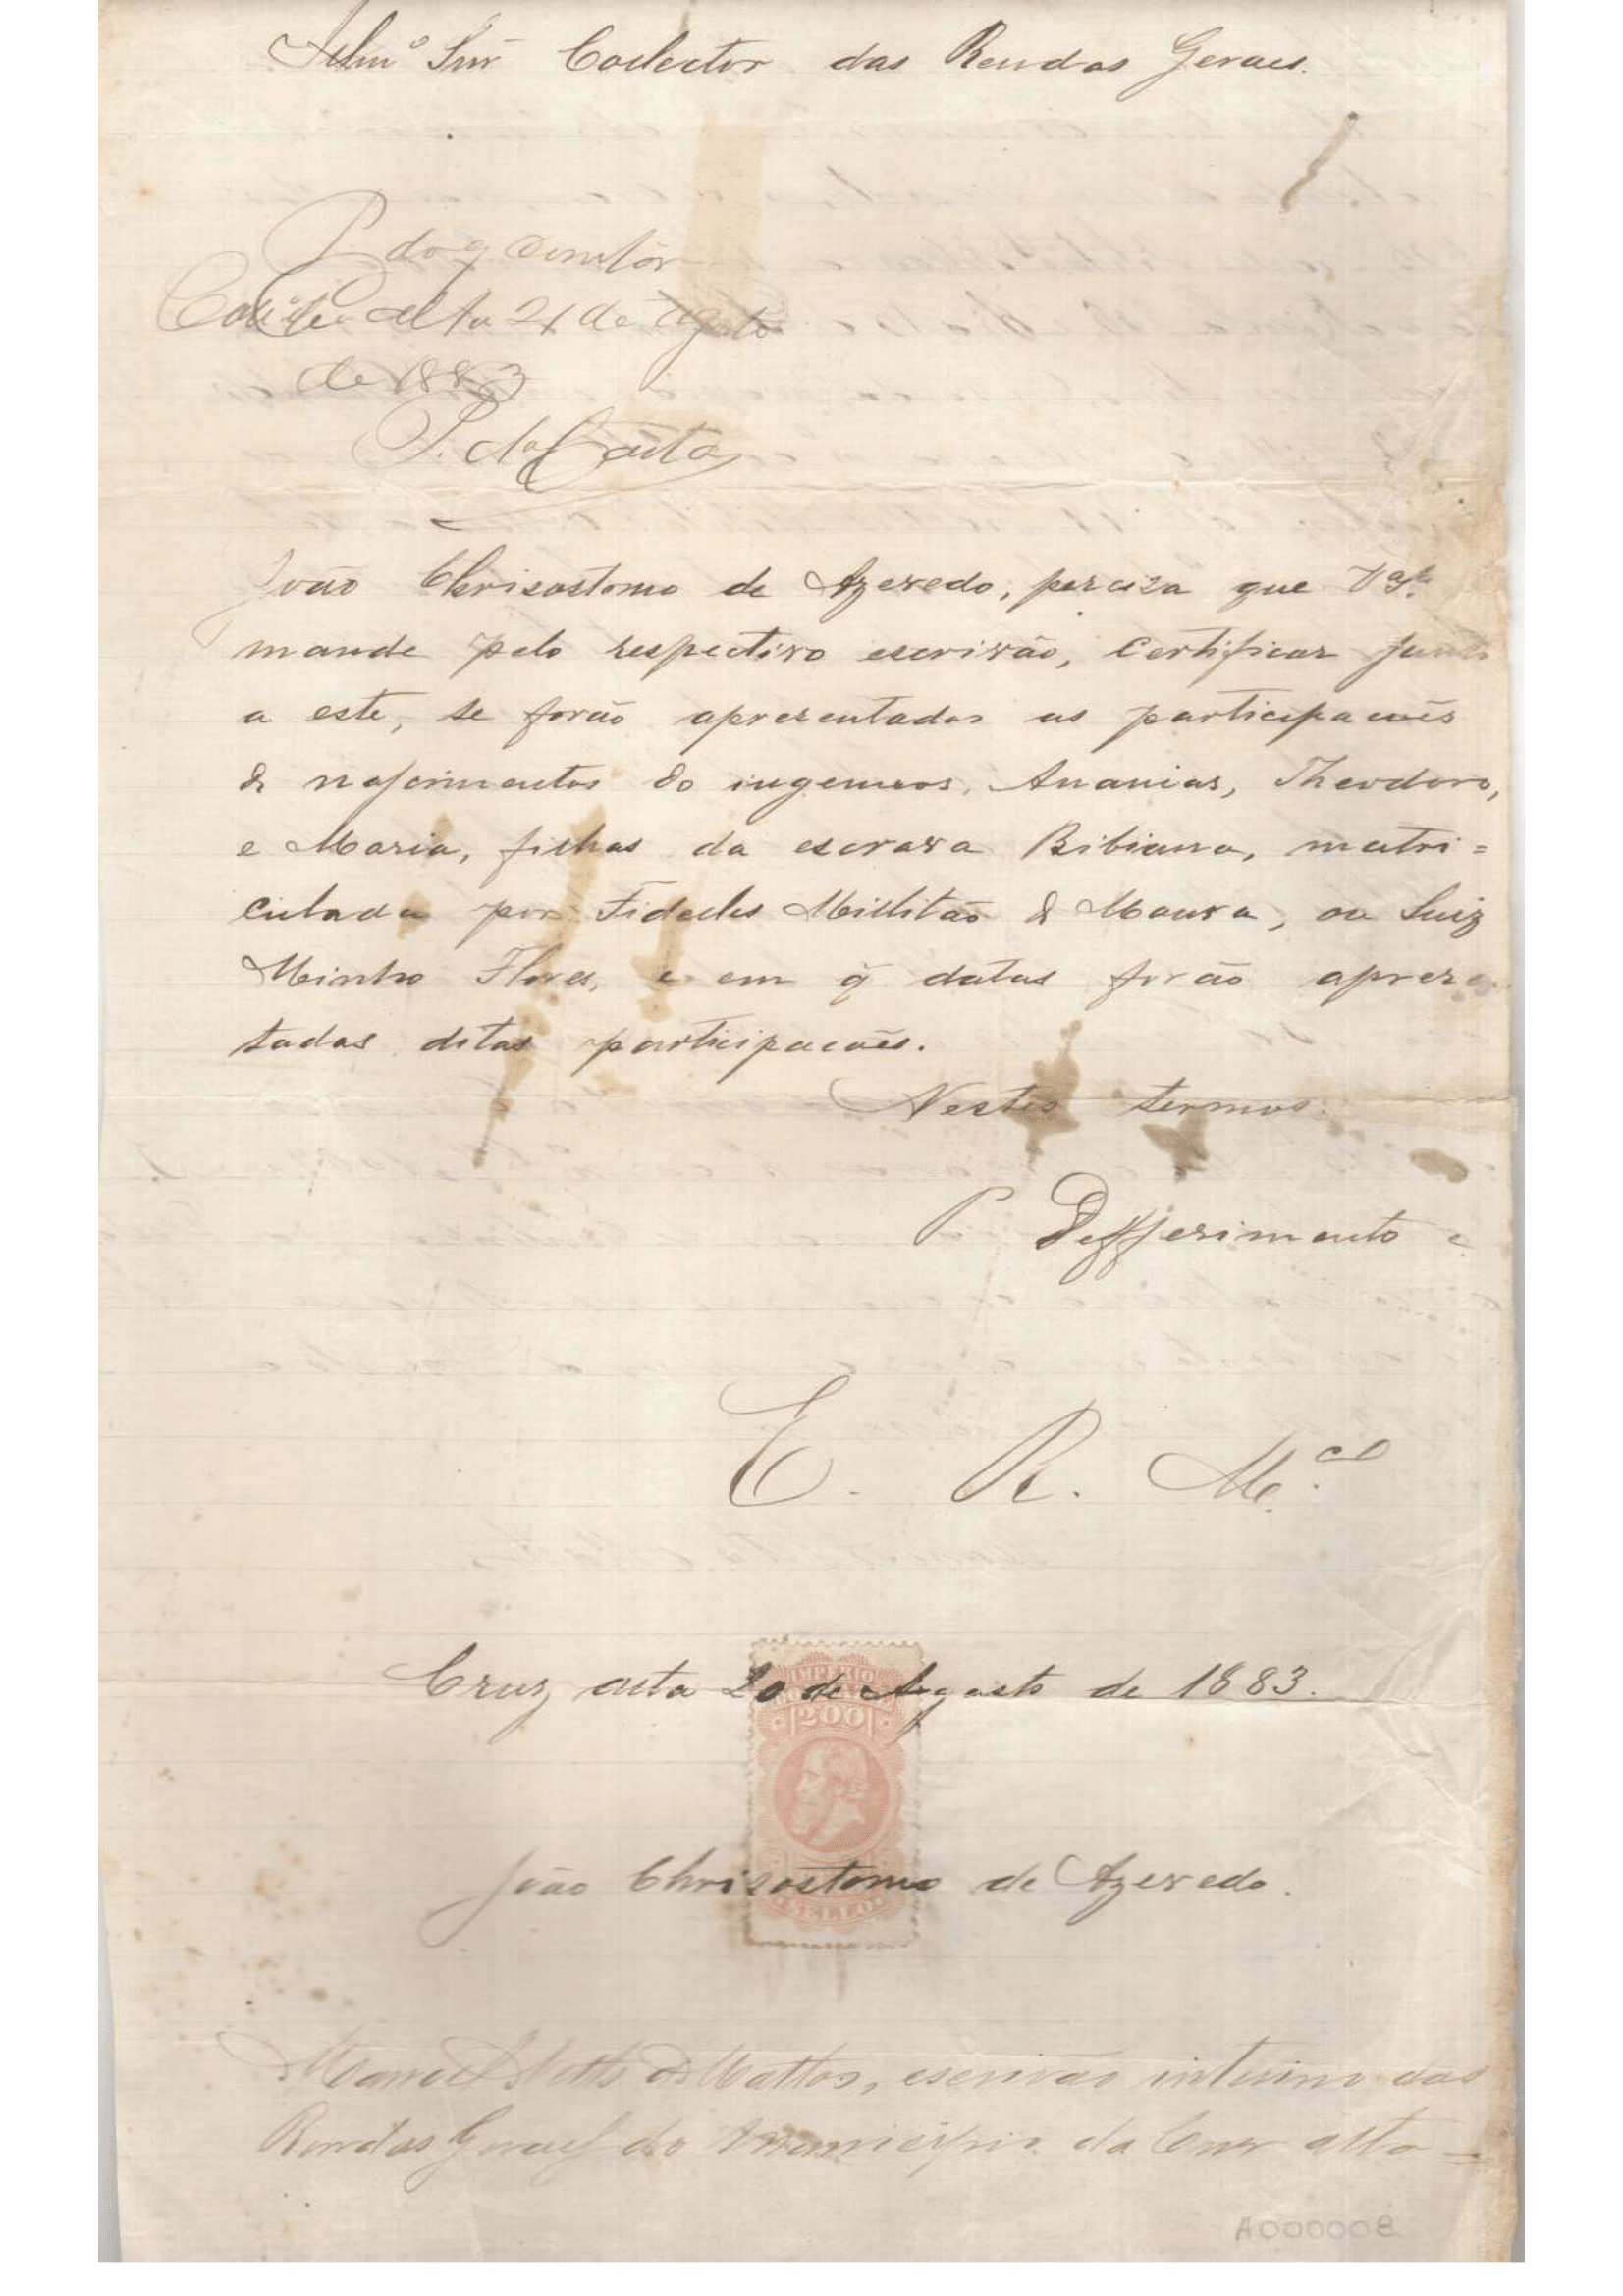 Illmº Snr Collector das Rendas Geraes.
P. do q constar
Coll. Alta 21 de Agosto
de 1883
P. da Costa
João Chrisostomo de Azevedo, perciza que Vª Sª
mande pelo respectivo escrivão, certificar junto
a este, se forão aprezentadas as participacões
de nascimentos do ingenuos, Ananias, Theodoro,
e Maria, filhas da escrava Bibiana, matri=
culada por Fidelis Millitão de Moura, ou Luiz
Minho Flores, e em q̃ datas forão aprezen
tadas ditas participacões.
Nestes termos.
P. Defferimento e
E. R. M.ce
Cruz alta 20 de Agosto de 1883.
IMPERIO
200
João Chrisostomo de Azevedo.
SELLO
Manoel Netto de Mattos, escrivão interino das
Rendas Geraes do Municipio da Cruz alta=
A000008